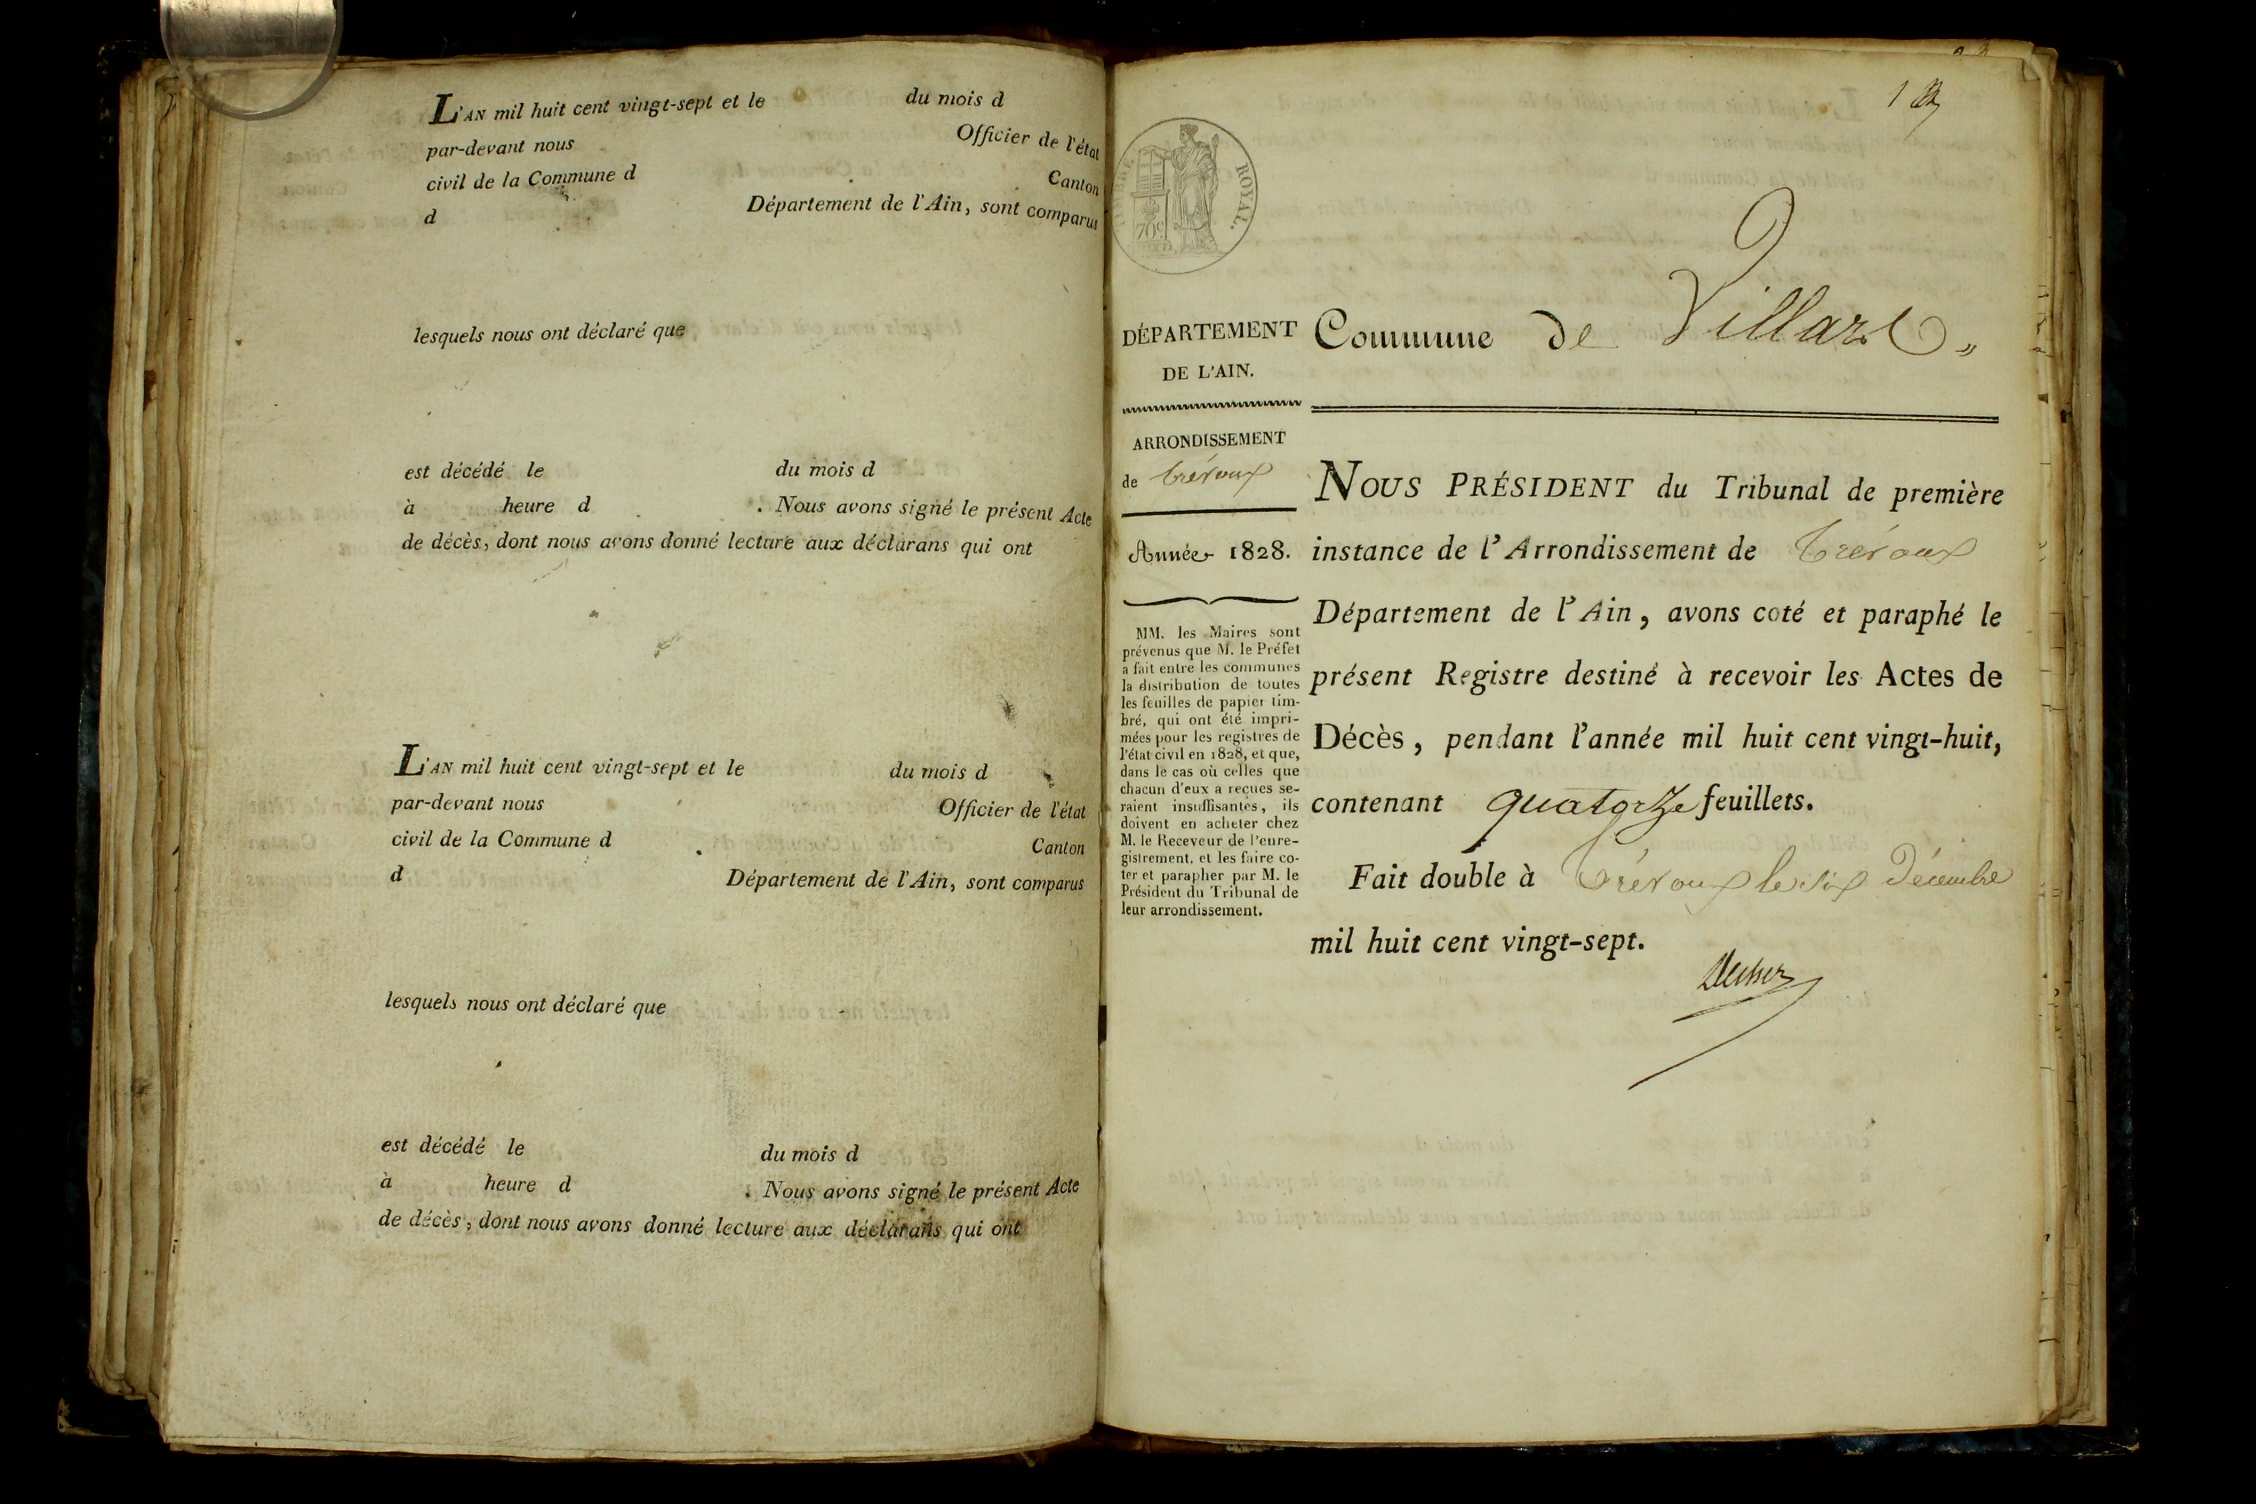 L'AN mil huit cent vingt-sept et le du mois d
par-devant nous Officier de l'état
civil de la Commune d Canton
d Département de l'Ain, sont comparus
lesquels nous ont déclaré que
est décédé le du mois d
à heure d . Nous avons signé le présent Acte
de décès, dont nous avons donné lecture aux déclarans qui ont
L'AN mil huit cent vingt-sept et le du mois d
par-devant nous Officier de l'état
civil de la Commune d Canton
d Département de l'Ain, sont comparus
lesquels nous ont déclaré que
est décédé le du mois d
à heure d . Nous avons signé le présent Acte
de décès, dont nous avons donné lecture aux déclarans qui ont
1
ROYAL.
70c
DÉPARTEMENT
DE L'AIN.
ARRONDISSEMENT
de Trévoux
Année 1828.
MM. les Maires sont
prévenus que M. le Préfet
a fait entre les communes
la distribution de toutes
les feuilles de papier tim-
bré, qui ont été impri-
mées pour les registres de
l'état civil en 1828, et que,
dans le cas où celles que
chacun d'eux a reçues se-
raient insuffisantes, ils
doivent en acheter chez
M. le Receveur de l'enre-
gistrement, et les faire co-
ter et parapher par M. le
Président du Tribunal de
leur arrondissement.
Commune de Villars
NOUS PRÉSIDENT du Tribunal de première
instance de l'Arrondissement de Trévoux
Département de l'Ain, avons coté et paraphé le
présent Registre destiné à recevoir les Actes de
Décès, pendant l'année mil huit cent vingt-huit,
contenant quatorze feuillets.
Fait double à Trévoux le six Décembre
mil huit cent vingt-sept.